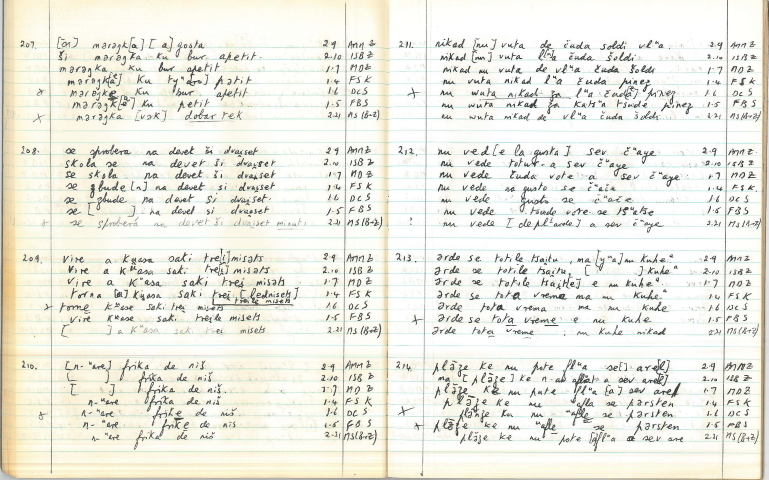 207. [ən] maragk[a] [a] gosta 2.9 ANNZ
ši maragka ku bur apetit. 2.10 ISBZ
maragka ku bur apetit 1.7 MDZ
Ku pətit 1.4 FSK
x maragke Ku bur apetit. 1.6 DCS
Ku petit 1.5 FBS
x maragka [vək] dobar tek 2.21 MS(B+Z)
208. se sprobera na devet ši dvajset 2.9 ANNZ
skola se na devet ši dvajset 2.10 ISBZ
se skola na devet ši dvajset 1.7 MDZ
se zbude [n] na devet si dvajset 1.4 FSK
se zbude na devet si dvajset. 1.6 DCS
se [ ] na devet si dvajset 1.5 FBS
x se sproberà na devet ši dvajset 2.21 MS(B+Z)
209. vire a Kʷasa saki misəts 2.9 ANNZ
vire a Kʷasa saki misəts 2.10 ISBZ
vire a Kʷasa saki trej misəts 1.7 MDZ
torna [a] Kʷasa saki trej 1.4 FSK
x torne kʷase saki trej misets 1.6 DCS
vire Kʷasa saki misets 1.5 FBS
[ ] a Kʷasa saki trei misets 2.21 MS(B+Z)
210. [n-ʷare] frika de niš 2.9 ANNZ
[ ] frika de niš 2.10 ISBZ
[ ] frika de niš 1.7 MDZ
n-ʷare frika de niš 1.4 FSK
x n-ʷare frike de niš. 1.6 DCS
n-ʷare frike de nis 1.5 FBS
n-ʷare frika de niš 2.21 MS(B+Z)
211. nikad [nu] vuta de čuda soldi vlʷa 2.9 ANNZ
nikad [nu] vuta lʷa čuda šoldi. 2.10 ISBZ
nikad nu vuta de vlʷa čuda šoldi 1.7 MDZ
nu vuta nikad lʷa čuda pinez 1.4 FSK
x nu wuta nikad za lʷa čude pinez 1.6 DCS
nu wuta nikad za tsude pinez 1.5 FBS
nu wuta nikad de vlʷa čuda šoldi 2.21 MS(B+Z)
212. nu ved [e la gusta] sev čʷaje 2.9 ANNZ.
nu vede totur a sev čʷaje 2.10 ISBZ
nu vede čuda vote a sev čʷaje 1.7 MDZ
nu vede na gusto se čʷača 1.4 FSK.
nu vede gusto se čʷače 1.6 DCS
nu vede tsude vote se 1.5 FBS
! nu vede a sev čʷaje 2.21 MS(B+Z)
213. ərde se totile tsajtu, ma nu kuhe 2.9 ANNZ
ərde se totile tsajtu, [ ] kuhe 2.10 ISBZ
ərde se totile e nu kuhe 1.7 MDZ
ərde se tota vrema ma nu kuhe 1.4 FSK
ərde tota vrema ma nu kuhe 1.6 DCS
x ərde se tota vreme e nu kuhe 1.5 FBS
ərde tota vreme nu kuhe nikad 2.21 MS(B+Z)
214. plāže ke nu pote 2.9 ANNZ
ma [plāze] ke a sev 2.10 ISBZ
plāže ke nu pute [a] sev 1.7 MDZ
plāže ke nu se pərsten 1.4 FSK
x plāže ku nu se pərsten 1.6 DCS
x plāže ke nu se pərsten 1.5 FBS
plāže ke nu pote a sev are 2.21 MS(B+Z)